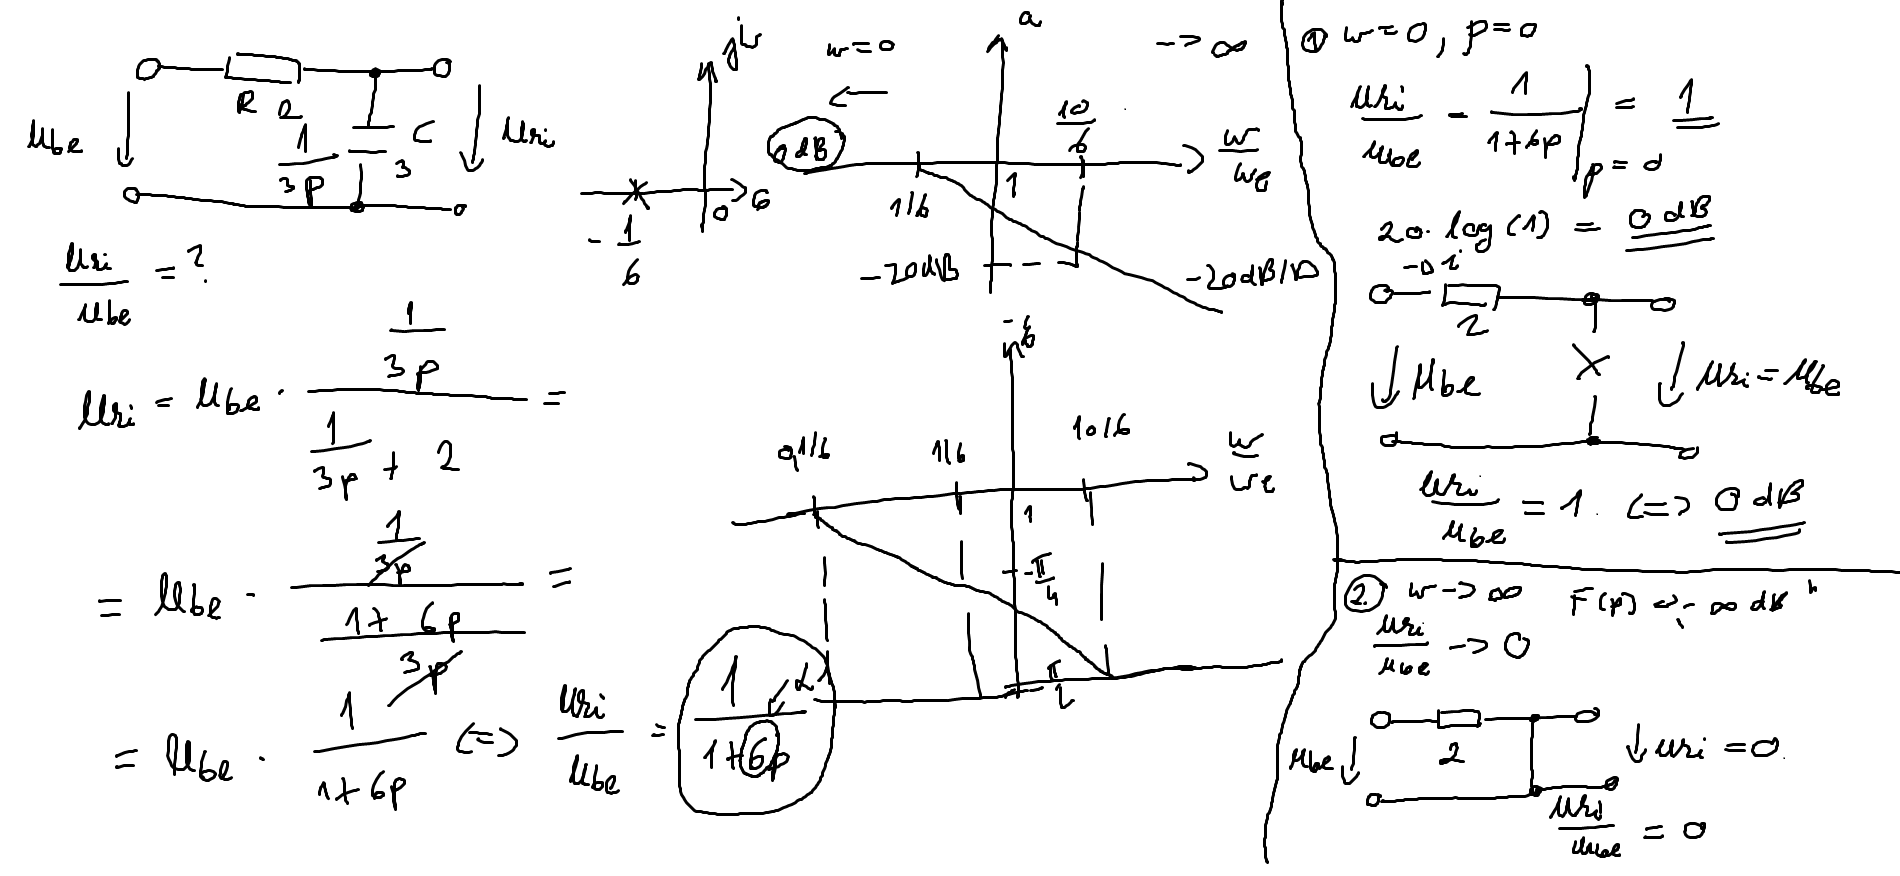 u_be
R 2
1/(3p)
C
3
u_ki
u_ki/u_be = ?
u_ki = u_be · (1/(3p))/(1/(3p) + 2) =
= u_be · (1/(3p))/((1+6p)/(3p)) =
= u_be · 1/(1+6p) <=> u_ki/u_be = 1/(1+6p)
jω
0 σ
-1/6
ω=0
a
-> ∞
0 dB
10/6
ω/ωe
1/6
1
-20dB
-20dB/D
-b
0,1/6
1/6
10/6
ω/ωe
1
-π/4
π/2
1. ω=0, p=0
u_ki/u_be - 1/(1+6p) |p=0 = 1
20·log(1) = 0 dB
->0 i
2
u_be
u_ki = u_be
u_ki/u_be = 1. <=> 0 dB
2. ω -> ∞
u_ki/u_be -> 0
u_be
2
u_ki = 0.
u_ki/u_be = 0